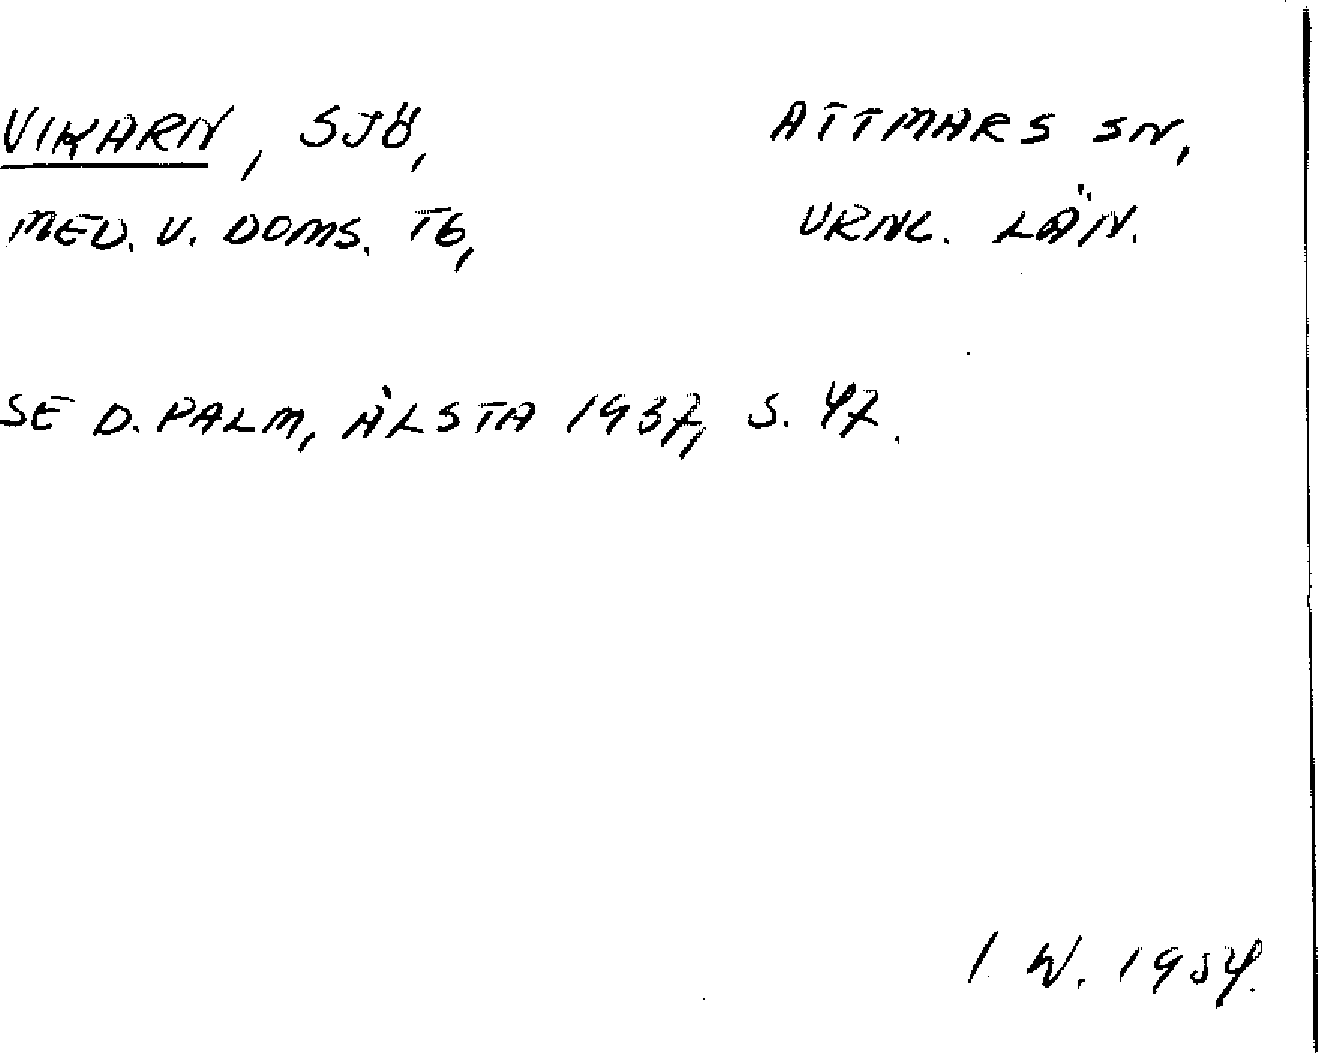 VIKARN, SJÖ, ATTMARS SN,
MED. V. DOMS. TG, VRNL. LÄN.
SE D. PALM, ÄLSTA 1937, S. 47.
I. W. 1954.